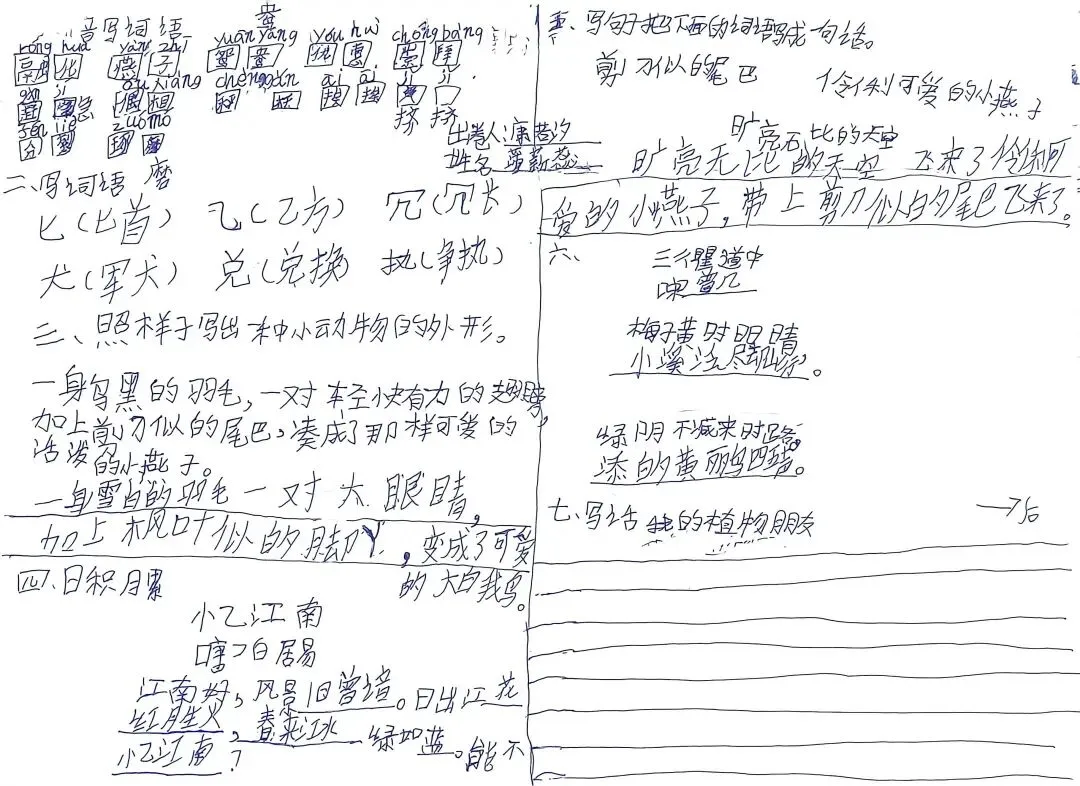 音写词语
róng huà yàn zi yuān yāng yōu huì chóng bài
ǒu xiàng chèng gǎn ái ái jǐ jǐ
zuó mo
挤 挤
出卷人:康若汐
姓名
二、写词语 磨
匕(匕首) 乙(乙方) 冗(冗长)
犬(军犬) 兑(兑换) 执(争执)
三、照样子写出一种小动物的外形。
一身乌黑的羽毛,一对轻快有力的翅膀,
加上剪刀似的尾巴,凑成了那样可爱的
活泼的小燕子。
一身雪白的羽毛一对大眼睛,
加上枫叶似的脚丫,变成了可爱
的大白我鸟。
四、日积月累
小乙江南
唐 白居易
江南好,风景旧曾谙。日出江花
红胜火,春来江水绿如蓝。能不
小乙江南?
五、写句子把下面的词语写成一句话。
剪刀似的尾巴 伶俐可爱的小燕子
旷亮无比的天空
旷亮无比的天空飞来了伶俐可
爱的小燕子,带上剪刀似的尾巴飞来了。
六、
三衢道中
曾几
梅子黄时日日晴
小溪泛尽却山行。
绿阴不减来时路
添的黄鹂四五声。
七、写话 我的植物朋友